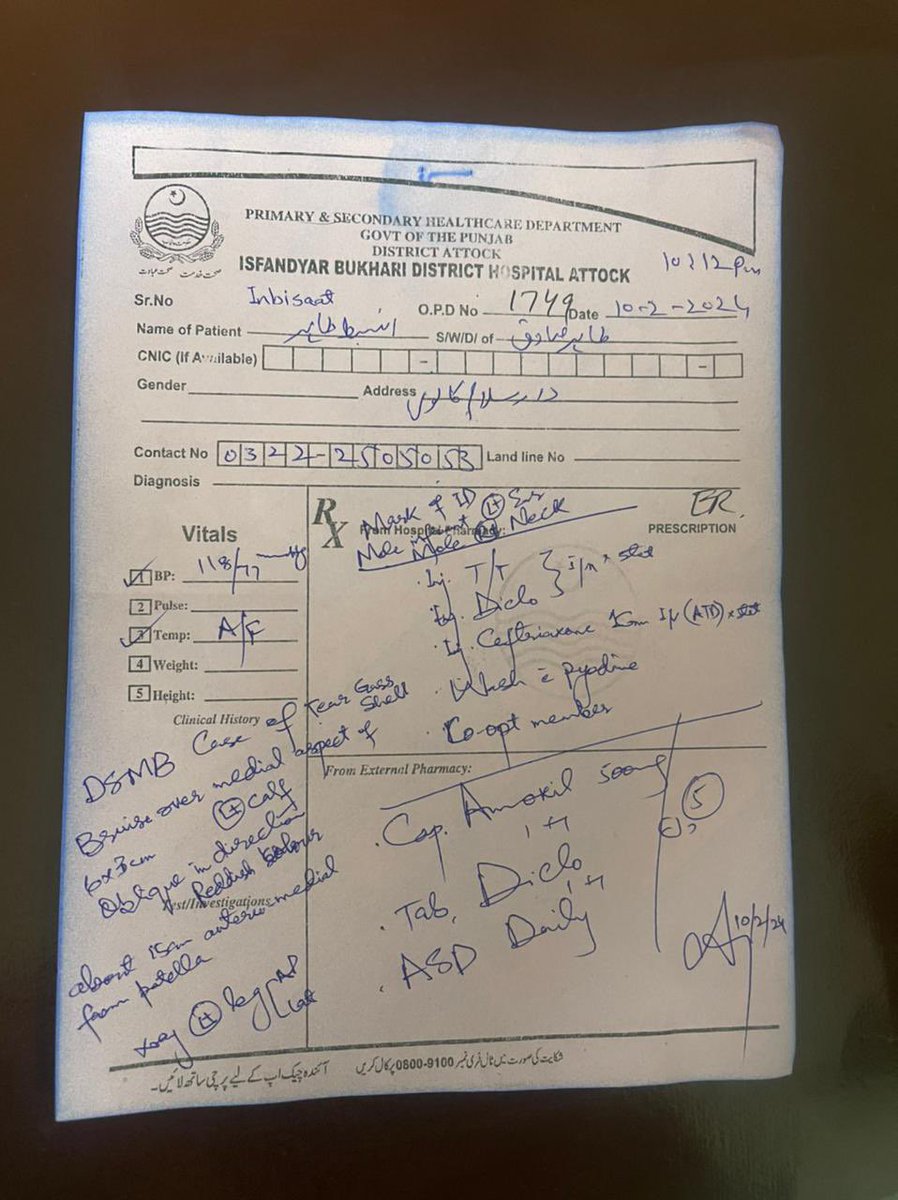 PRIMARY & SECONDARY HEALTHCARE DEPARTMENT
GOVT OF THE PUNJAB
DISTRICT ATTOCK
ISFANDYAR BUKHARI DISTRICT HOSPITAL ATTOCK
صحت خدمت صحت عبادت
10:12 Pm
Sr.No Inbisaat O.P.D No 1749 Date 10-2-2024
Name of Patient انبساط طاہر S/W/D/ of طاہر صادق
CNIC (If Available)
Gender Address دارسلام کالونی
Contact No 0322-2505053 Land line No
Diagnosis
Rx From Hospital Pharmacy: ER.
PRESCRIPTION
Mark of ID
Mole Lt Ear
Mole Neck
Vitals
1 BP: 118/77 mmHg
2 Pulse:
3 Temp: A/F
4 Weight:
5 Height:
Inj. T/T
Inj. Diclo } I/m x stat
Inj. Ceftriaxone 1gm I/v (ATD) x stat
Wash c pyodine
Co-opt member
Clinical History
DSMB Case of Tear Gass Shell
Bruise over medial aspect of
Lt calf
6x3cm
Oblique in direction
Reddish colour
Test/Investigations
about 15cm anterio medial
from patella
xray Lt leg AP
Lat
From External Pharmacy:
Cap. Amoxil 500mg
1+1
5
Tab. Diclo
1+1
ASD Daily
10/2/24
شکایت کی صورت میں ٹال فری نمبر 0800-9100 پر کال کریں
آئندہ چیک اپ کے لیے پرچی ساتھ لائیں۔